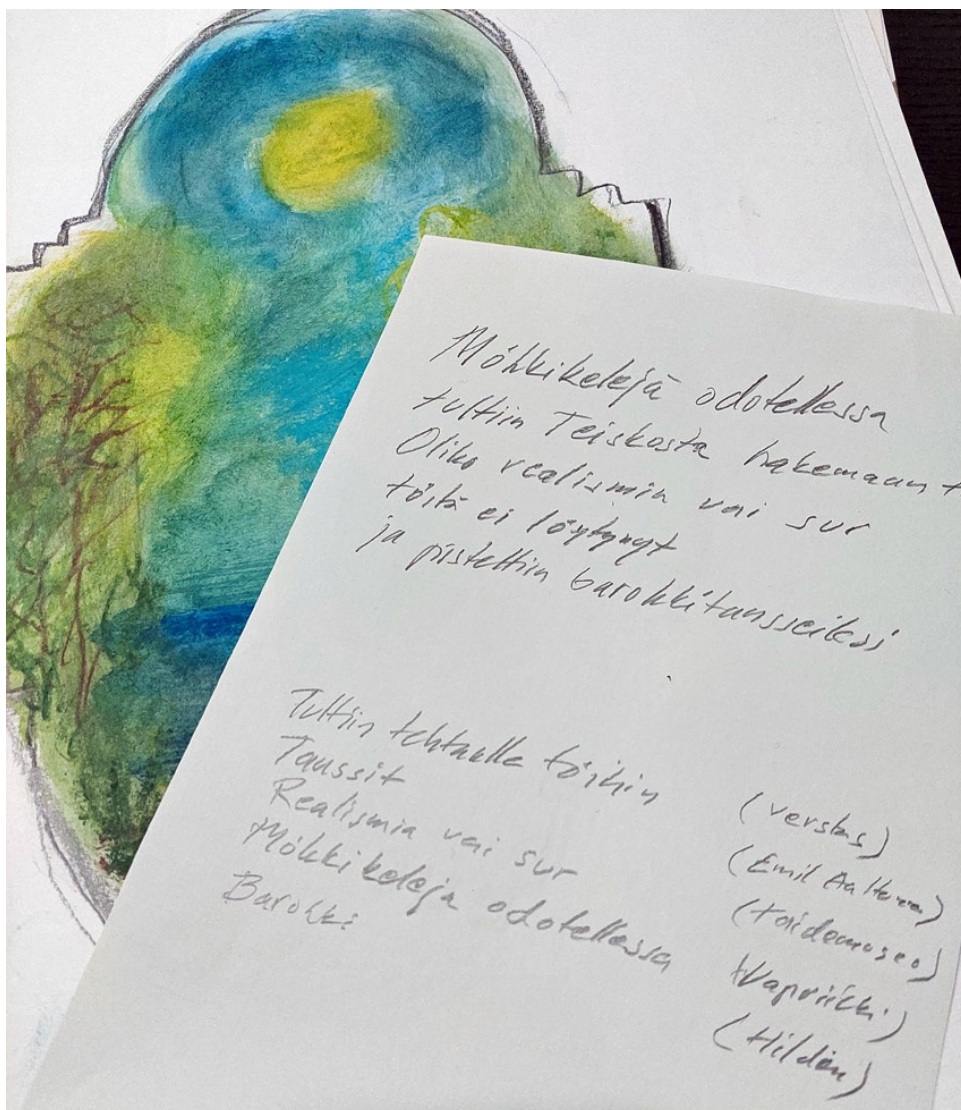 Mökkikelejä odotellessa
tultiin Teiskosta hakemaan t
Oliko realismia vai sur
töitä ei löytynyt
ja pisteltiin barokkitansseiksi
Tultiin tehtaalle töihin (Verstas)
Tanssit (Emil Aaltonen)
Realismia vai sur (taidemuseo)
Mökkikelejä odotellessa Vapriikki)
Barokki (Hildén)